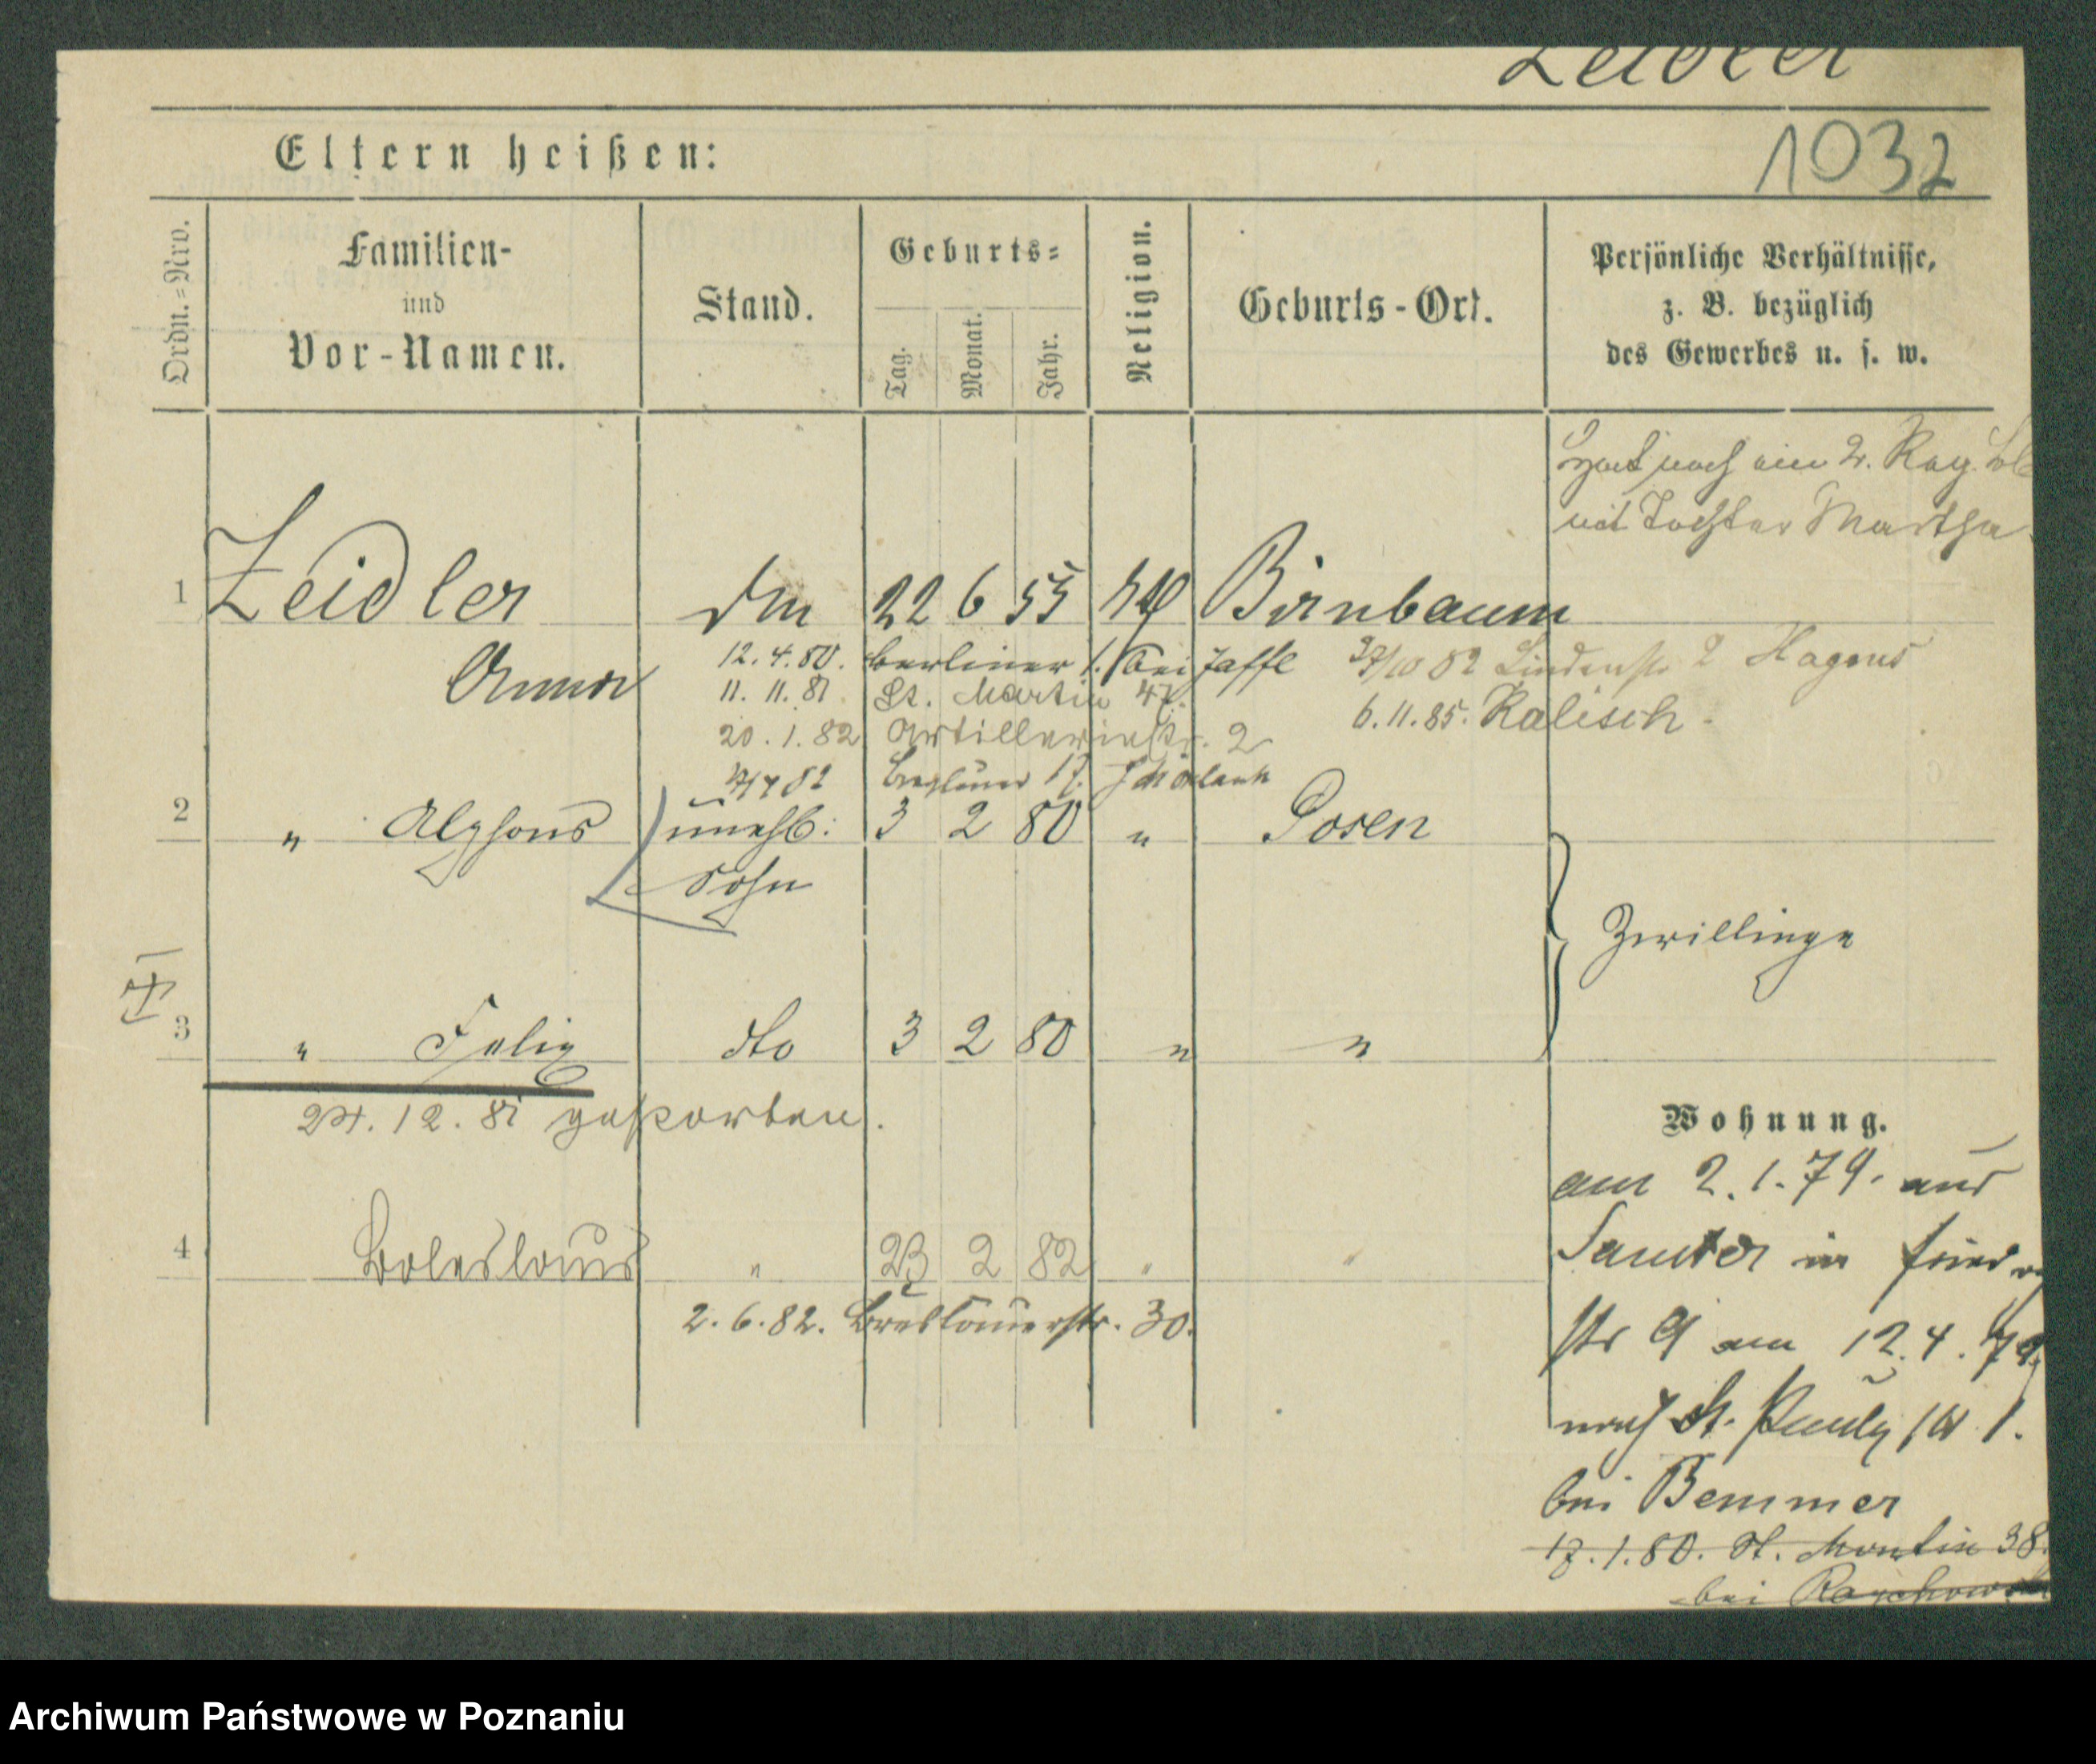 Zeidler
1032
Eltern heißen:
Ordn.=Nro.
Familien-
und
Vor-Namen.
Stand.
Geburts=
Tag.
Monat.
Jahr.
Religion.
Geburts-Ort.
Persönliche Verhältnisse,
z. B. bezüglich
des Gewerbes u. s. w.
Hat noch ein 2.
mit Tochter Martha
1 Zeidler 22 6 55 Birnbaum
Anna
12. 4. 80. Berliner 1. bei Jaffe
82 Lindenstr 2 Hagens
11. 11. 81 St. Martin 47.
6. 11. 85. Kalisch.
20. 1. 82 Artilleriestr. 2
82 17.
2 " Alphons unehl: 3 2 80 " Posen
Sohn
Zwillinge
3 " Felix dto 3 2 80 " "
24. 12. 81 gestorben.
Wohnung.
am 2. 1. 79. aus
4 Boleslaus " 23 2 82 " "
Samter in
2. 6. 82. Breslauerstr. 30.
str 9 am 12. 4. 79.
nach St. 1.
bei Bemmer
17. 1. 80. St. Martin 38.
bei
Archiwum Państwowe w Poznaniu